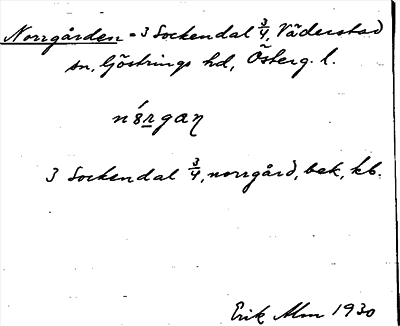 Norrgården = 3 Sockendal 3/4, Väderstad
sn, Göstrings hd, Österg. l.
n8́rgaɳ
3 Sockendal 3/4, norrgård, bek, kb.
Erik Alm 1930